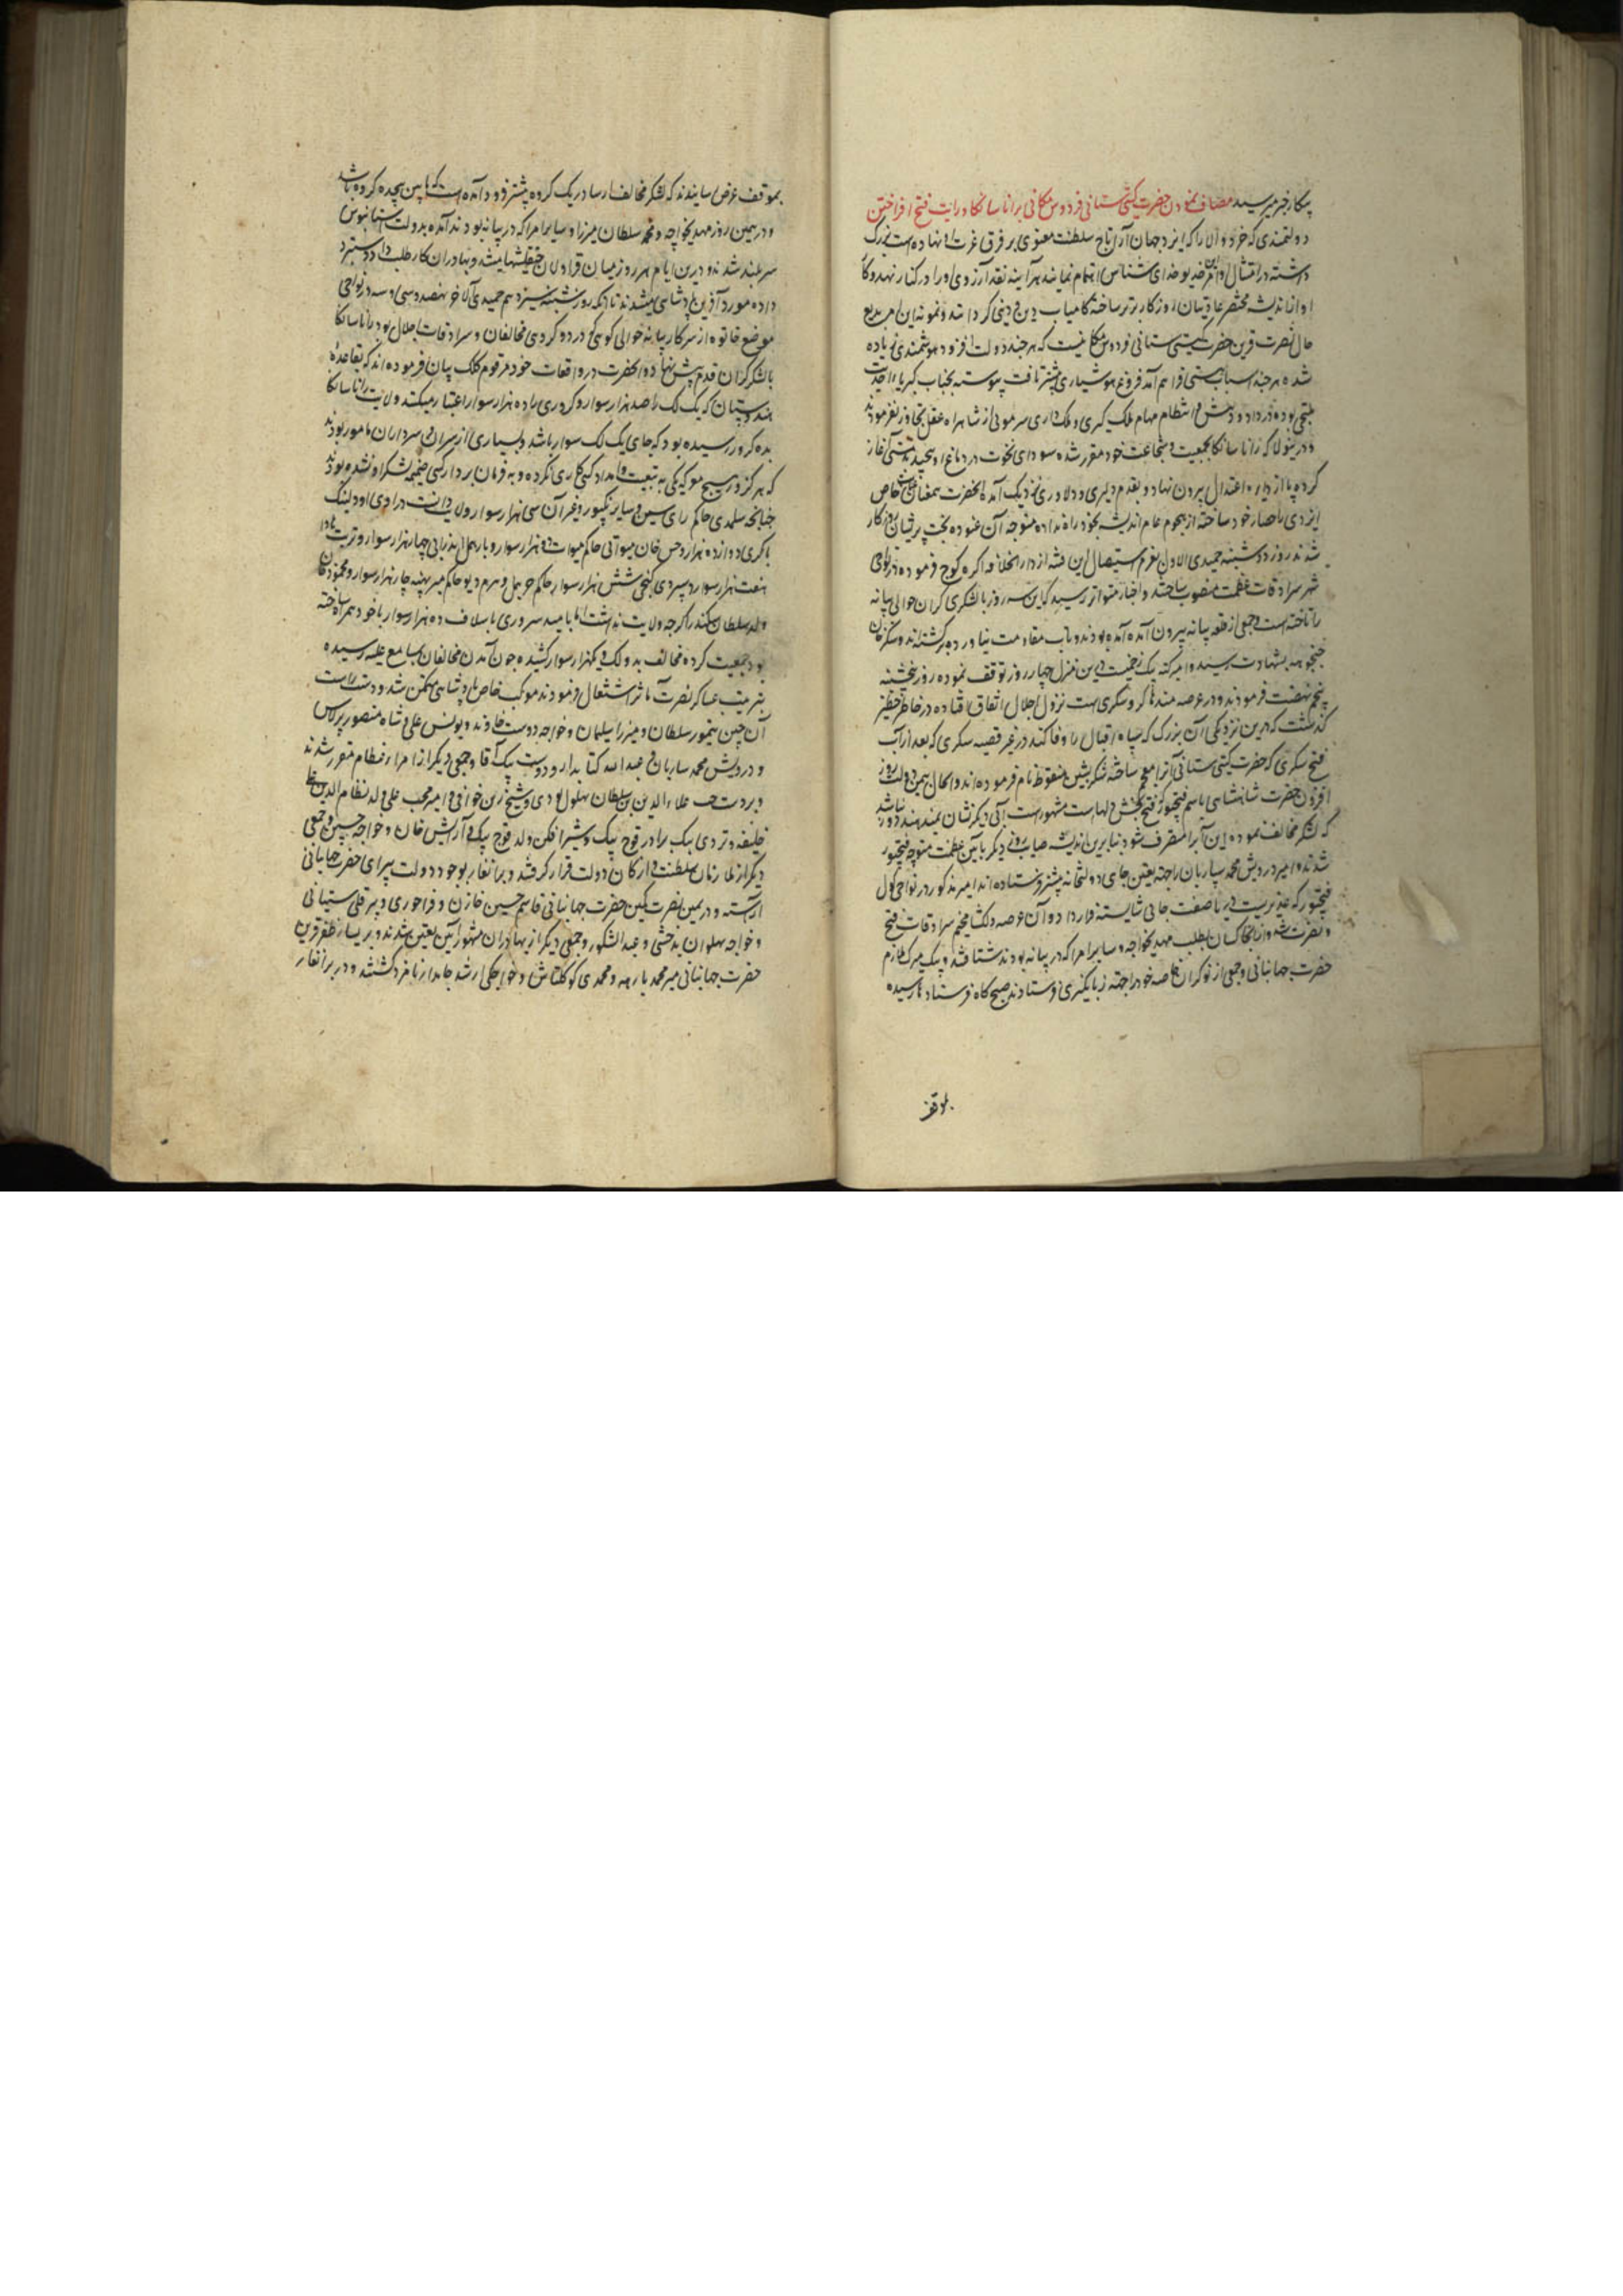 پیکار خبر میرسید مصاف نمودن حضرت گیتی ستانی فردوس مکانی برانا سانکا و رایت فتح افراختن
دولتمندی که خرد والا را که ایزد جهان آرا تاج سلطنت معنوی بر فرق عزت او نهاده است بزرگ
داشته در امتثال اوامر خدیو خدای شناس اهتمام نمایند هر آینه نقد آرزوی او را در کنار نهند و کا
او از اندیشه مختصر عادتیان روزگار برتر ساخته کامیاب دین و دنیی گرداند و نمونه این امر بدیع
حال نصرت قرین حضرت گیتی ستانی فردوس مکانیست که هر چند دولت افزود هوشمندی زیاده
شده هر چند اسباب مستی فراهم آمد فروغ هوشیاری پیشتر تافت پیوسته بجناب کبریاء احدیت
ملتجی بوده در داد و دهش و انتظام مهام ملک گیری و ملک داری سر موئی از شاهراه عقل تجاوز نفرمودند
و درینولا که رانا سانکا بجمعیت و شجاعت خود مغرور شده سودای نخوت در دماغ او پیچید مستی آغاز
کرده پا از دایره اعتدال بیرون نهاد و بقدم دلیری و دلاوری نزدیک آمد آنحضرت همعنان عنایت خاص
ایزدی را حصار خود ساخته از هجوم عام اندیشه بخود راه نداده متوجه آن غنوده بخت
شدند روز دوشنبه جمیدی الاول بعزم استیصال این فتنه از دار الخلافه اکره کوچ فرموده در نواحی
شهر سرادقات عظمت منصوب ساختند و اخبار متواتر رسید که این سیه روز با لشکری کران حوالی بیانه
را تاخته است و جمعی از قلعه بیانه بیرون آمده آمده بودند و تاب مقاومت نیاورده برکشته اند و سنکر خان
جنجوهه بشهادت رسید و امیر کته بیک زخمیست درین منزل چهار روز توقف نموده روز پنجشنبه
پنجم نهضت فرمودند و در عرصه مندهاکر و سکری است نزول اجلال اتفاق افتاده در خاطر خطیر
گذشت که درین نزدیکی آب بزرگ که سپاه اقبال را وفا کند در غیر قصبه سکری که بعد از آب
فتح سکری که حضرت گیتی ستانی آنرا معجم ساخته شکر بشین منقوط نام فرموده اند و الحال بیمن دولت روز
افزون حضرت شاهنشاهی باسم فتحپور که فتح بخش دلهاست مشهور است آبی دیگر نشان نمیدهند دور نباشد
که لشکر مخالف نموده این آب را متصرف شود بنابرین اندیشه صایب روز دیگر بآئین عظمت متوجه فتحپور
شدند و امیر درویش محمد ساربان را جهة تعیین جای دولتخانه پیشتر فرستاده اند امیر مذکور در نواحی کول
فتحپور که غدیریست جای شایسته قرار داد و آن عرصه دلکشا مخیم سرادقات فتح
و نصرت شد و از آنجا کسان بطلب مهدی خواجه و سایر امرا که در بیانه بودند شتافتند و بیک میرک ملازم
حضرت جهانبانی و جمعی از نوکران خاصه خود را جهة زبانگیری فرستادند صبح گاه فرستادها رسیده
بموقف
بموقف عرض رسانیدند که لشکر مخالف از بساور یک کروه پیشتر فرود آمده است که مابین هجده کروه باشد
و در همین روز مهدیخواجه و محمد سلطان میرزا و سایر امرا که در بیانه بودند آمده بدولت آستانبوس
سربلند شدند و درین ایام هر روز میان قراولان چپقلشها میشد و بهادران کار طلب داد دستبرد
داده مورد آفرین پادشاهی میشدند تا آنکه روز شنبه سیزدهم جمیدی الاخر نهصد و سی و سه در نواحی
موضع خانوه از سرکار بیانه حوالی کوهی که در دو کروهی مخالفان و سرادقات اجلال بود رانا سانکا
با لشکر کران قدم پیش نهاد و آنحضرت در واقعات خود مرقوم کلک بیان فرموده اند که بقاعدهٔ
هندوستان که یک لک را صد هزار سوار و کروری را ده هزار سوار اعتبار میکنند ولایت رانا سانکا
بده کرور رسیده بود که جای یک لک سوار باشد و بسیاری از سران و سرداران نامور بودند
که هرگز در هیچ معرکه یکی به تبعیت و امداد کسی کاری نکرده و به فرمان برداری کسی ضمیمه لشکر او نشده بودند
چنانچه سلهدی حاکم رای سین و سایر نکپور و غیر آن سی هزار سوار ولایت داشت و راوی اودیسنک
باکری دوازده هزار و حسن خان میواتی حاکم میوات ده هزار سوار و بارهمل ایدری چهار هزار سوار و نربت هادا
هفت هزار سوار و ستردی کچی شش هزار سوار حاکم و پرم دیو حاکم میرتهه چهار هزار سوار و محمود خان
ولد سلطان سکندر اگرچه ولایت نداشت اما بامید سروری با سلاف ده هزار سوار با خود همراه ساخته
بود جمعیت کرده مخالف بدو لک و یکهزار سوار کشیده چون آمدن مخالفان بمسامع علیه رسیده
بترتیب عساکر نصرت مآثر اشتغال فرمودند موکب خاص پادشاهی متمکن شد و دست راست
آن چین تیمور سلطان و میرزا سلیمان و خواجه دوست خاوند و یونس علی و شاه منصور برلاس
و درویش محمد ساربان و عبد الله کتابدار و دوست ایشک آقا و جمعی دیگر از امراء عظام مقرر شدند
و بر دست چپ علاء الدین بن سلطان بهلول لودی و شیخ زین خوافی و امیر محب علی ولد نظام الدین علی
خلیفه و تردی بیک برادر قوج بیک و شیر افکن ولد قوج بیک و آرایش خان و خواجه حسین و جمعی
دیگر از ملازمان سلطنت و ارکان دولت قرار گرفتند و برانغار بوجود دولت پیرای حضرت جهانبانی
آراسته و در یمین نصرت مکین حضرت جهانبانی قاسم حسین خازن و پیر قلی سیستانی
و خواجه پهلوان بدخشی و عبد الشکور و جمعی دیگر از بهادران تعیین شدند و بر یسار ظفر قرین
حضرت جهانبانی میر همه و محمدی کوکلتاش و خواجکی اسد جاندار نامزد کشتند و در برانغار